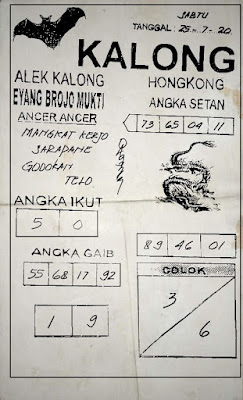 SABTU
TANGGAL : 25 - 7 - 20
KALONG
ALEK KALONG
EYANG BROJO MUKTI
ANCER ANCER
MANGKAT KERJO
SARAPANE
GODOKAN
TELO
HONGKONG
ANGKA SETAN
73 65 04 11
ANGKA IKUT
5 0
89 46 01
ANGKA GAIB
55 68 17 92
COLOK
3
6
1 9